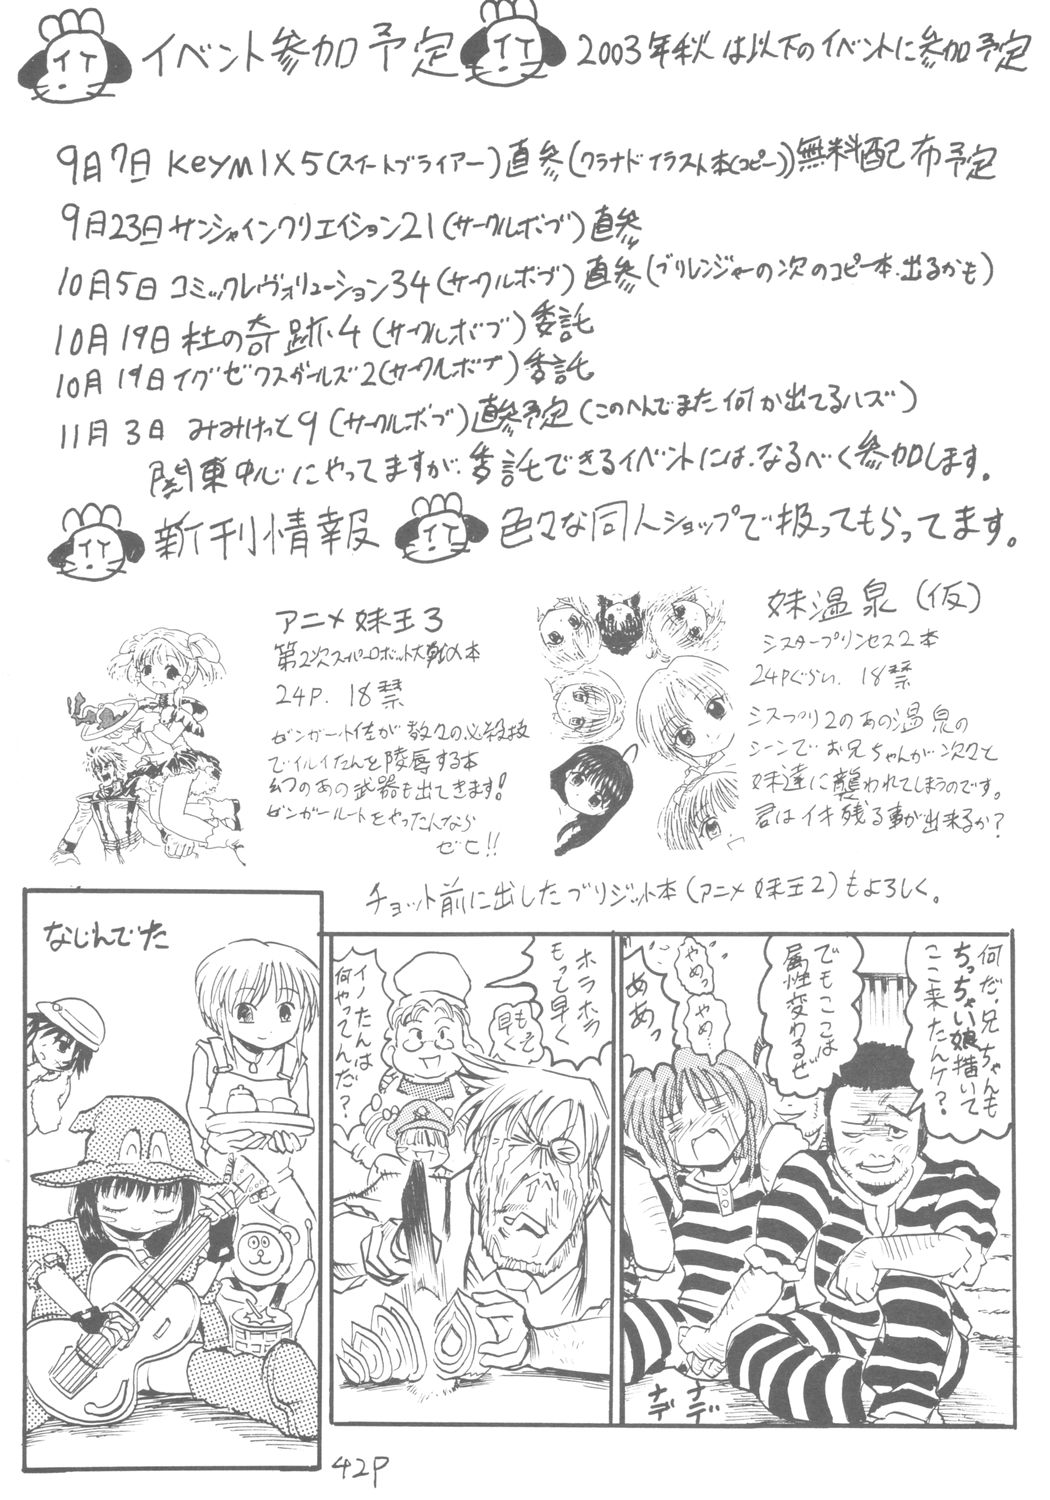 イベント参加予定
2003年秋は以下のイベントに参加予定
9月7日 keymIX5(スイートブライアー)直参(クラナドイラスト本(コピー))無料配布予定
9月23日 サンシャインクリエイション21(サークルボブ)直参
10月5日 コミックレヴォリューション34(サークルボブ)直参(ブリレンジャーの次のコピー本、出るかも)
10月19日 杜の奇跡4(サークルボブ)委託
10月19日 イグゼクスガールズ2(サークルボブ)委託
11月3日 みみけっと9(サークルボブ)直参予定(このへんでまた何か出てるハズ)
関東中心にやってますが、委託できるイベントには、なるべく参加します。
新刊情報
色々な同人ショップで扱ってもらってます。
アニメ妹王3
第2次スーパーロボット大戦α本
24P. 18禁
ゼンガー少佐が数々の必殺技
でイルイたんを陵辱する本
幻のあの武器も出てきます!
ゼンガールートをやったんなら
ゼヒ!!
妹温泉(仮)
シスタープリンセス2本
24Pぐらい. 18禁
シスプリ2のあの温泉の
シーンでお兄ちゃんが次々と
妹達に襲われてしまうのです。
君はイキ残る事が出来るか?
チョット前に出したブリジット本(アニメ妹王2)もよろしく。
何だ、兄ちゃんも
ちっちゃい娘描いて
ここ来たんケ?
でもここは
属性変わるぜ
やめっ
やめ…
ああっ
ナデ
ナデ
ホラホラ
もって早く
もって
早く
イノたんは
何やってんだ?
なじんでた
42P